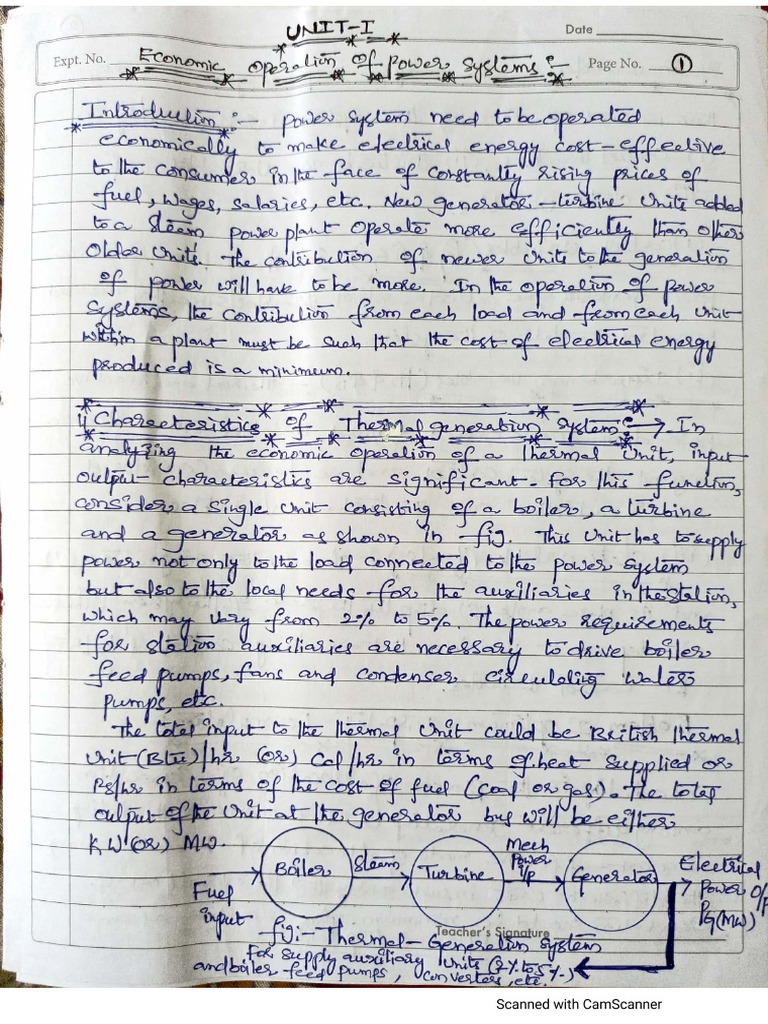 UNIT-I
Date
Expt. No. Economic Operation of Power Systems :-
Page No. 1
Introduction :- power system need to be operated
economically to make electrical energy cost-effective
to the consumer in the face of constantly rising prices of
fuel, wages, salaries, etc. New generator-turbine units added
to a steam power plant operate more efficiently than other
older units. The contribution of newer units to the generation
of power will have to be more. In the operation of power
systems, the contribution from each load and from each unit
within a plant must be such that the cost of electrical energy
produced is a minimum.
1) Characteristics of Thermal generation system :- → In
analyzing the economic operation of a thermal unit, input-
output characteristics are significant. For this function,
consider a single unit consisting of a boiler, a turbine
and a generator as shown in fig. This unit has to supply
power not only to the load connected to the power system
but also to the local needs for the auxiliaries in the station,
which may vary from 2% to 5%. The power requirements
for station auxiliaries are necessary to drive boiler
feed pumps, fans and condenser circulating water
pumps, etc.
The total input to the thermal unit could be British thermal
unit (Btu)/hr (or) Cal/hr in terms of heat supplied or
Rs/hr in terms of the cost of fuel (coal or gas). The total
output of the unit at the generator bus will be either
KW (or) MW.
Fuel input
Boiler
Steam
Turbine
Mech Power i/p
Generator
Electrical Power O/P
PG(MW)
Teacher's Signature
fig:- Thermal-Generation system
For supply auxiliary units (2% to 5%)
and boiler feed pumps, converters, etc.
Scanned with CamScanner